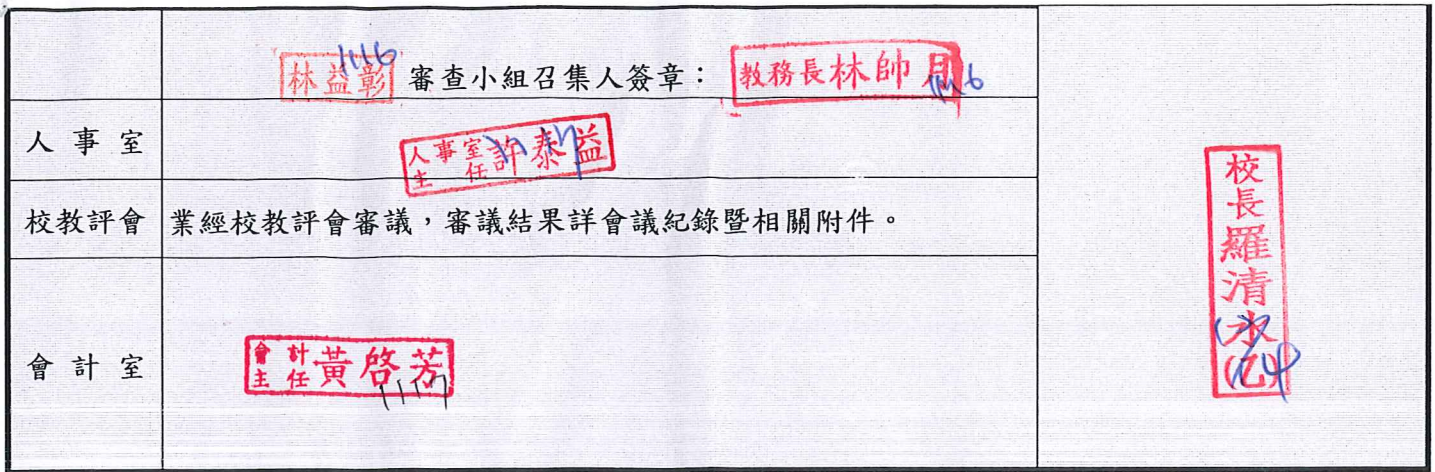 林益彰 審查小組召集人簽章： 教務長林帥月
1116
1116
人事室
人事室主任許泰益
校教評會 業經校教評會審議，審議結果詳會議紀錄暨相關附件。
會計室
會計主任黃啓芳
1117
校長羅清水(乙)